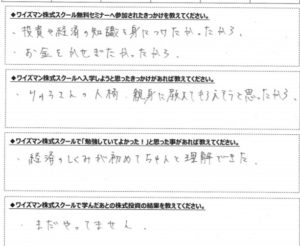 ◆ワイズマン株式スクール無料セミナーへ参加されたきっかけを教えてください。
・投資や経済の知識を身につけたかったから
・お金をかせぎたかったから
◆ワイズマン株式スクールへ入学しようと思ったきっかけがあれば教えてください。
・りゅうさんの人柄、親身に教えてもらえそうと思ったから
◆ワイズマン株式スクールで「勉強していてよかった!」と思った事があれば教えてください。
・経済のしくみが初めてちゃんと理解できた。
◆ワイズマン株式スクールで学んだあとの株式投資の結果を教えてください。
・まだやってません。